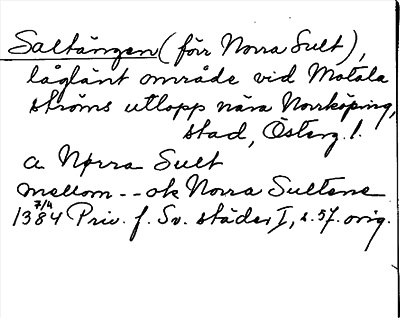 Saltängen (förr Norra Sult),
låglänt område vid Motala
ströms utlopp nära Norrköping,
stad, Österg. l.
a Nørra Sult
mellom -- ok Norra Sultene
7/4
1384 Priv. f. Sv. städer I, s. 57. orig.